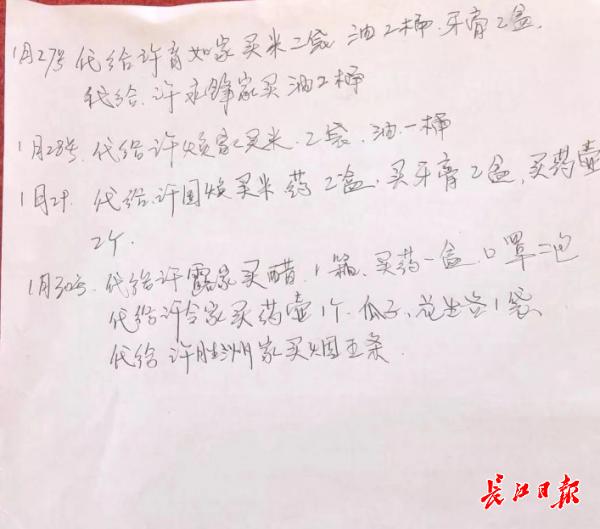 1月27号 代给许育如家买米二袋 油2桶.牙膏2盒.
代给.许永锋家买油2桶
1月28号.代给许焕家买米.2袋.油.一桶
1月29. 代给.许国焕买米 药 2盒.买牙膏2盒,买药壶
2个.
1月30号.代给许露家买醋.1箱.买药一盒.口罩二包
代给许合家买药壶1个.瓜子、花生各1袋、
代给许胜洲家买烟五条.
长江日报